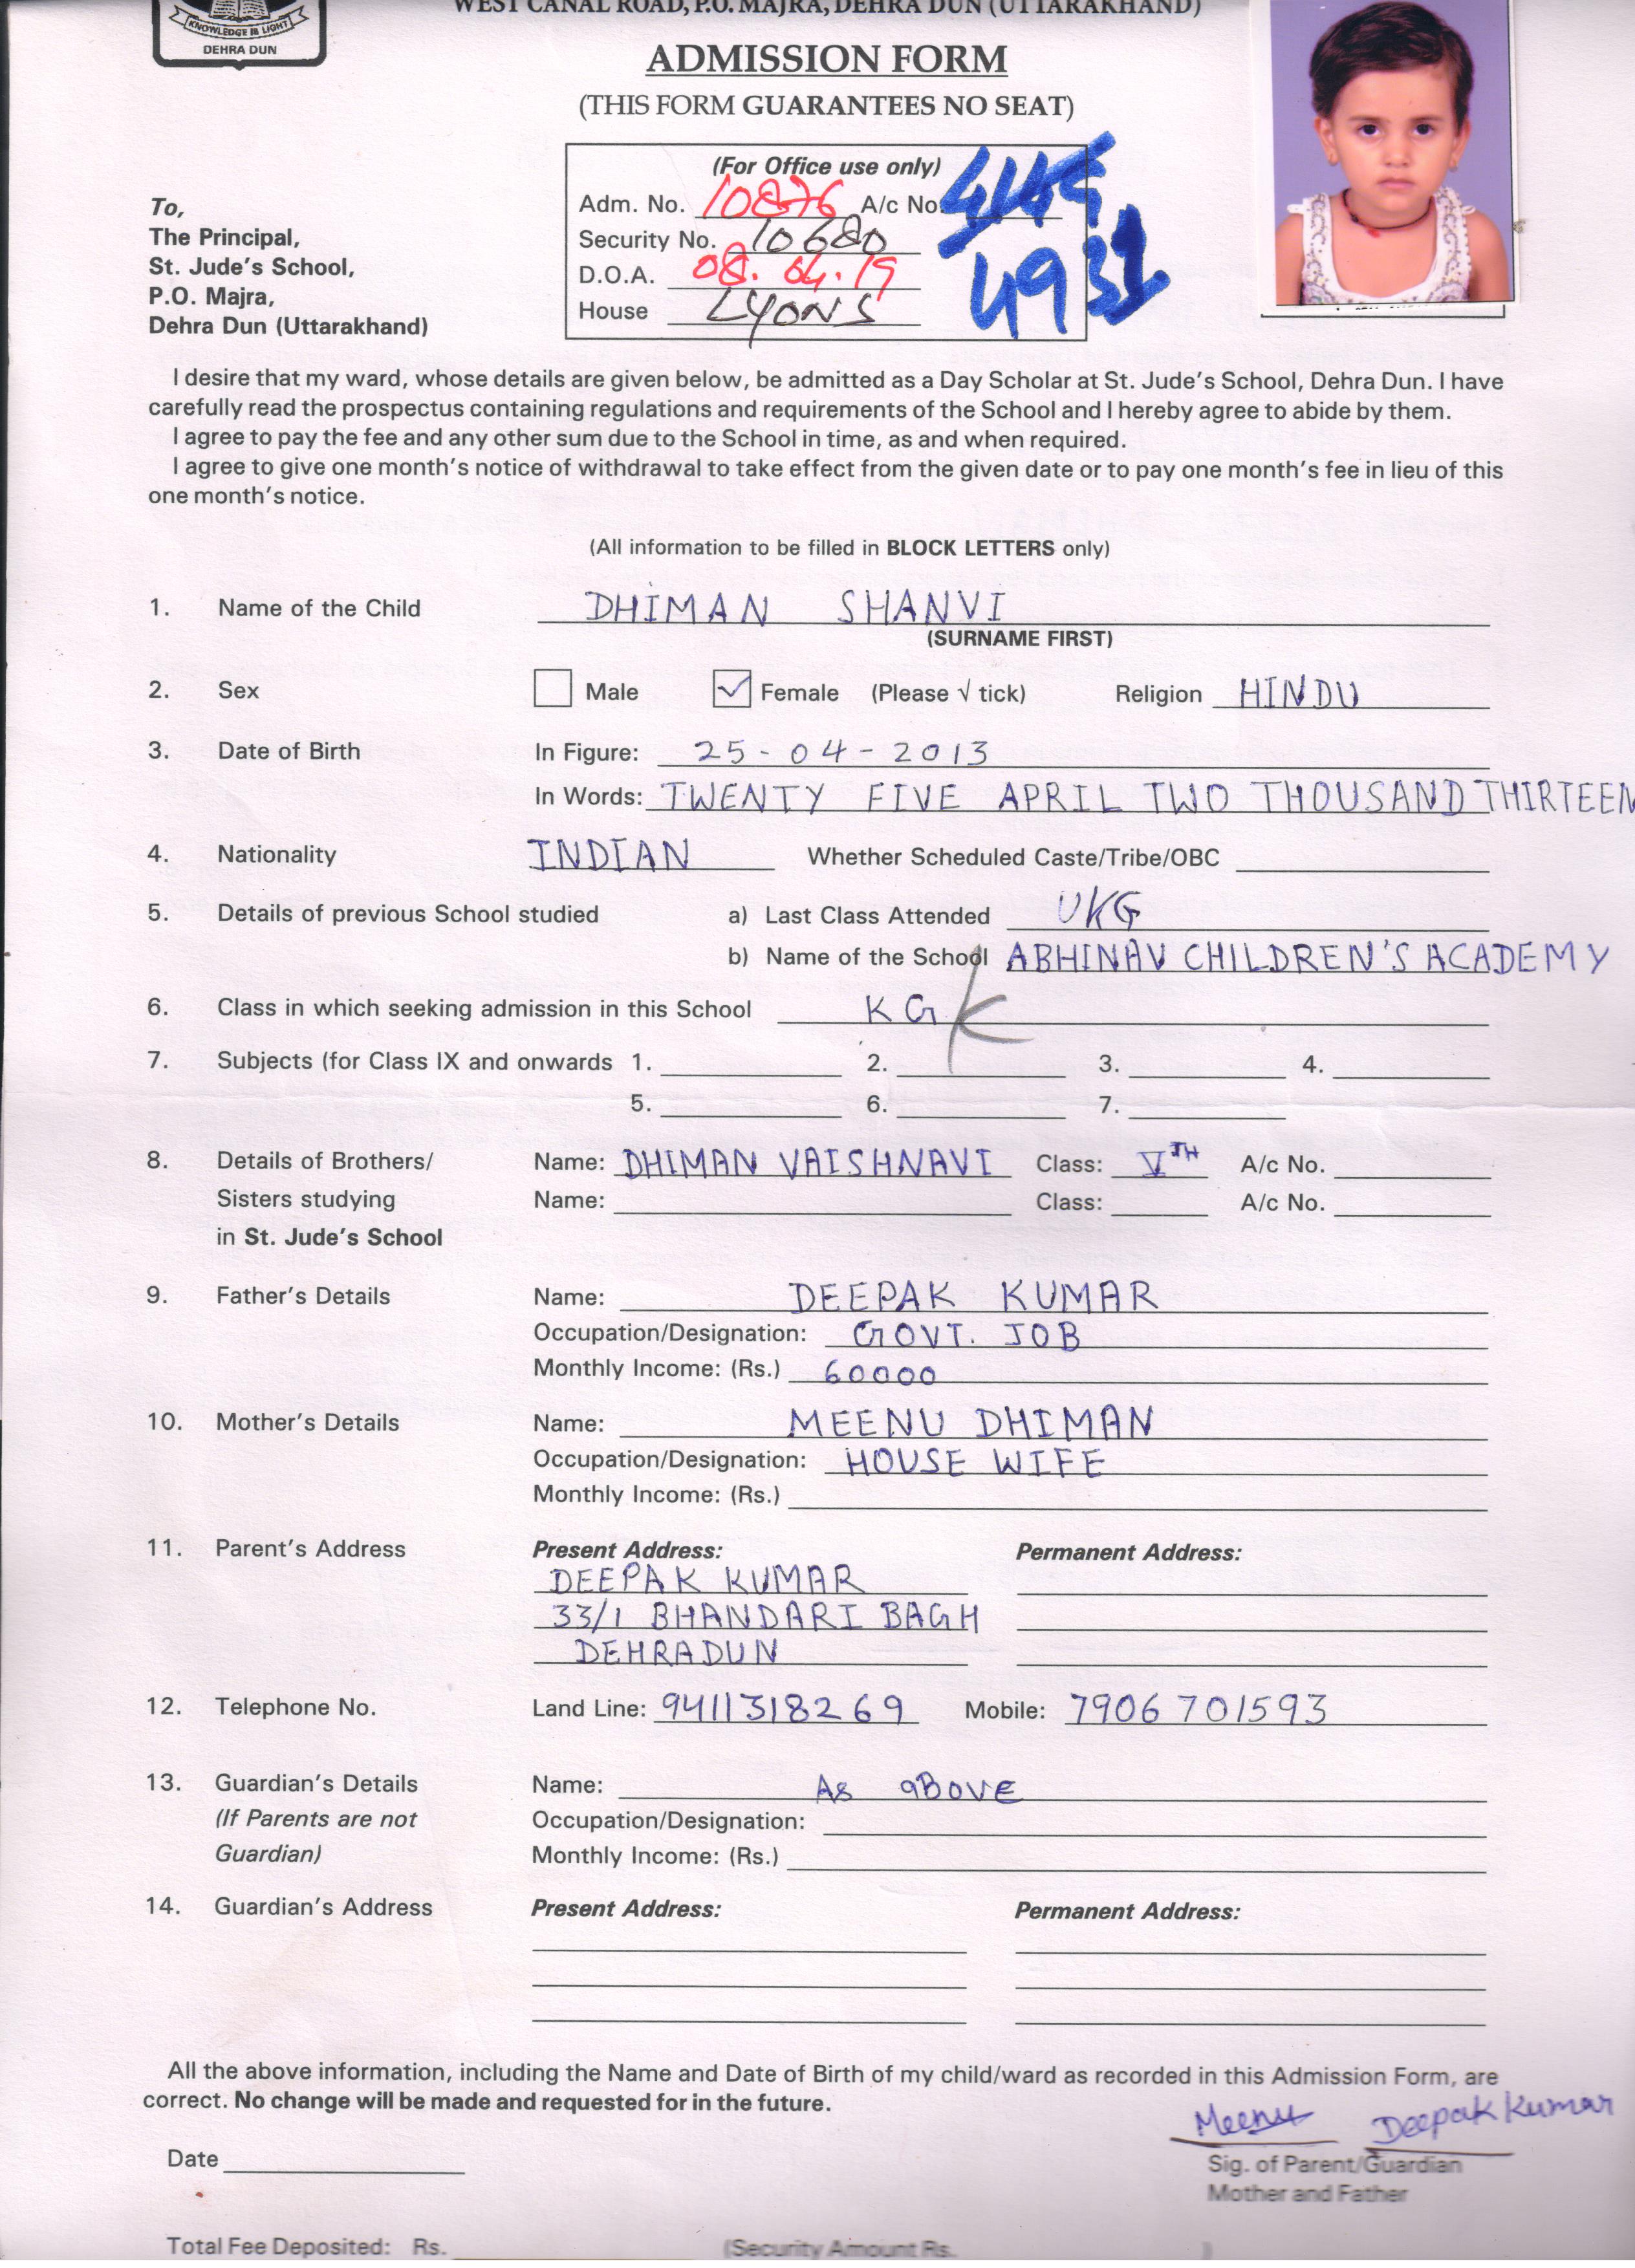 WEST CANAL ROAD, P.O. MAJRA, DEHRA DUN (UTTARAKHAND)
KNOWLEDGE IS LIGHT
DEHRA DUN
ADMISSION FORM
(THIS FORM GUARANTEES NO SEAT)
(For Office use only)
Adm. No. 10876 A/c No.
4931
Security No. 10680
D.O.A. 08.04.19
House LYONS
To,
The Principal,
St. Jude's School,
P.O. Majra,
Dehra Dun (Uttarakhand)
I desire that my ward, whose details are given below, be admitted as a Day Scholar at St. Jude's School, Dehra Dun. I have
carefully read the prospectus containing regulations and requirements of the School and I hereby agree to abide by them.
I agree to pay the fee and any other sum due to the School in time, as and when required.
I agree to give one month's notice of withdrawal to take effect from the given date or to pay one month's fee in lieu of this
one month's notice.
(All information to be filled in BLOCK LETTERS only)
1. Name of the Child DHIMAN SHANVI
(SURNAME FIRST)
2. Sex Male ✓ Female (Please √ tick) Religion HINDU
3. Date of Birth In Figure: 25-04-2013
In Words: TWENTY FIVE APRIL TWO THOUSAND THIRTEEN
4. Nationality INDIAN Whether Scheduled Caste/Tribe/OBC
5. Details of previous School studied a) Last Class Attended UKG
b) Name of the School ABHINAV CHILDREN'S ACADEMY
6. Class in which seeking admission in this School KG
7. Subjects (for Class IX and onwards 1. 2. 3. 4.
5. 6. 7.
8. Details of Brothers/ Name: DHIMAN VAISHNAVI Class: VTH A/c No.
Sisters studying Name: Class: A/c No.
in St. Jude's School
9. Father's Details Name: DEEPAK KUMAR
Occupation/Designation: GOVT. JOB
Monthly Income: (Rs.) 60000
10. Mother's Details Name: MEENU DHIMAN
Occupation/Designation: HOUSE WIFE
Monthly Income: (Rs.)
11. Parent's Address Present Address: Permanent Address:
DEEPAK KUMAR
33/1 BHANDARI BAGH
DEHRADUN
12. Telephone No. Land Line: 9411318269 Mobile: 7906701593
13. Guardian's Details Name: As aBOVE
(If Parents are not Occupation/Designation:
Guardian) Monthly Income: (Rs.)
14. Guardian's Address Present Address: Permanent Address:
All the above information, including the Name and Date of Birth of my child/ward as recorded in this Admission Form, are
correct. No change will be made and requested for in the future.
Meenu Deepak Kumar
Date
Sig. of Parent/Guardian
Mother and Father
Total Fee Deposited: Rs. (Security Amount Rs. )